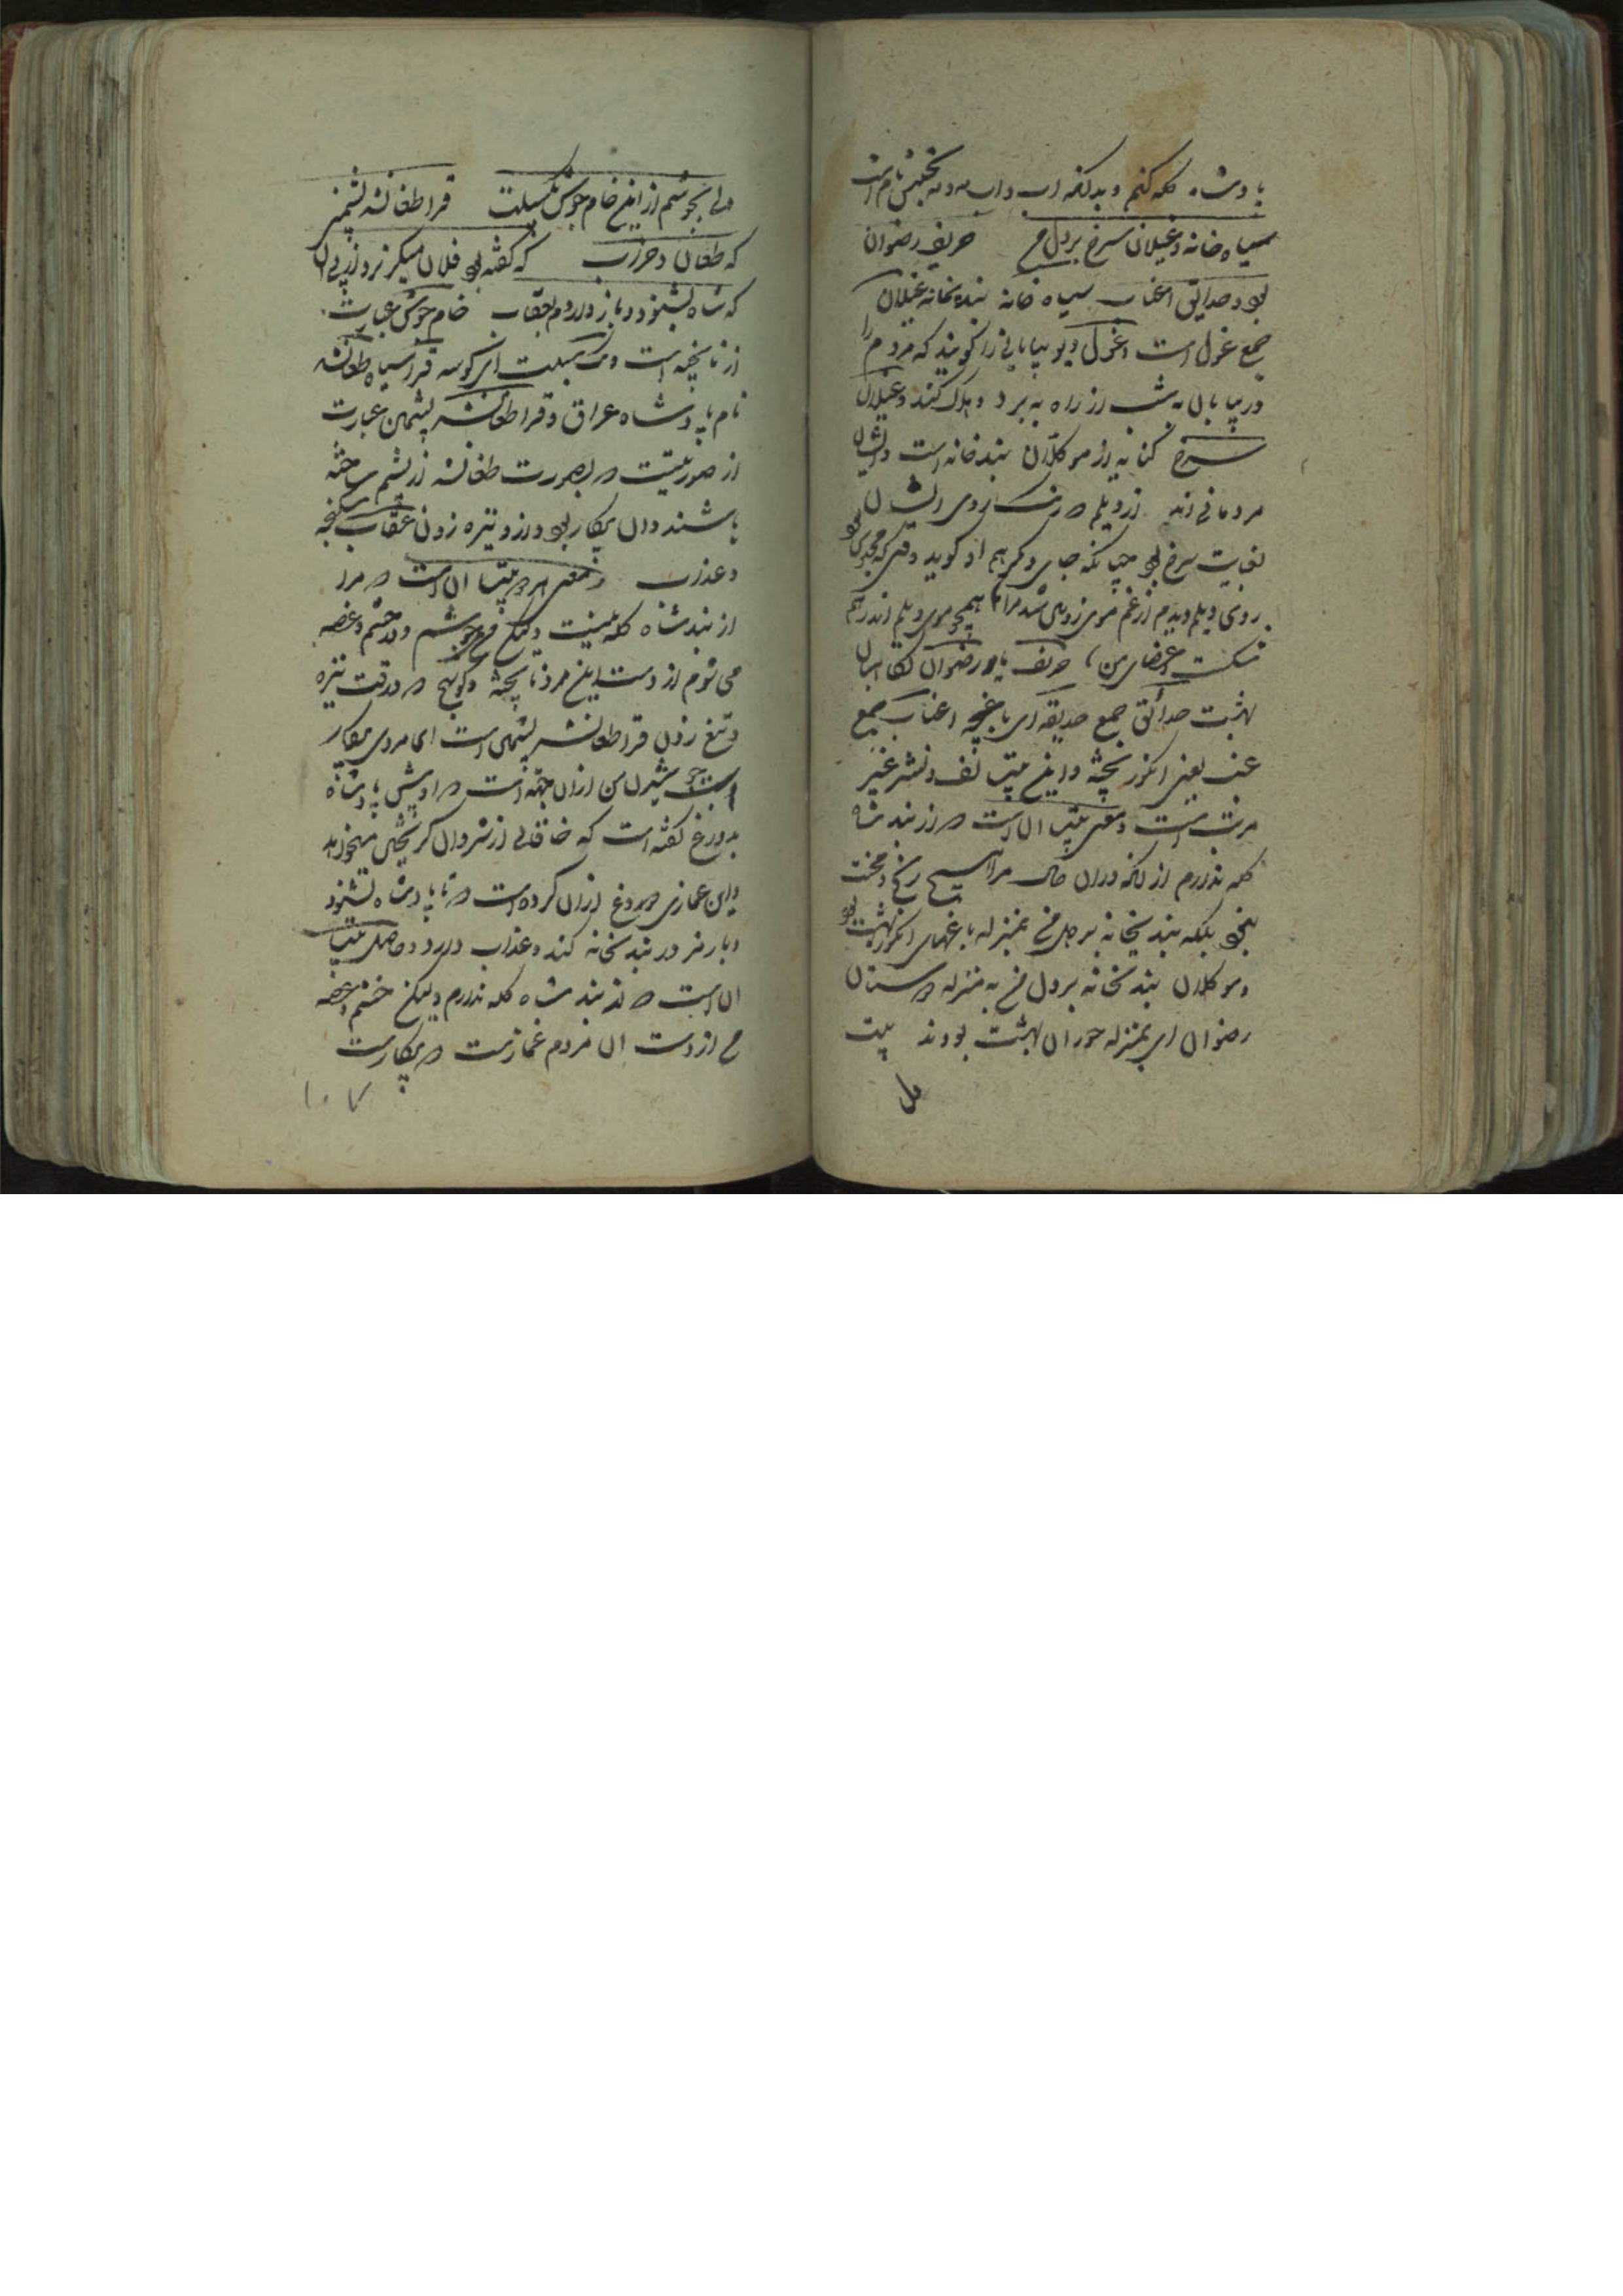 بادشاه گله کنم و بدانکه اب و اب
سیاه خانه و غیلان سرخ بر دل من حریف رضوان
بود و حدایق اعناب سیاه خانه بندیخانه غیلان
جمع غول است و غول دیو بیابانی را گویند که مردم را
در بیابان به شب از راه به برد و هلاک کند و غیلان
سرخ کنایه از موکلان بندخانه است و ایشان
مردمانی اند از دیلم که رنگ روی ایشان
بغایت سرخ بود چنانکه جای دیگر هم او گوید
روی دیلم دیدم از غم موی زوبین شد مرا همچو موی دیلم اندر هم
شکست اعضای من حریف یار و رضوان نگاهبان
بهشت حدائق جمع حدیقه ای باغچه اعناب جمع
عنب یعنی انگور پخته و این بیت لف و نشر غیر
مرتب است و معنی بیت آن است که از بند شاه
گله ندارم از آنکه در آن حال مرا هیچ رنج و محنت
نبود بلکه بندیخانه بر دل من بمنزله باغهای انگور بهشت بود
و موکلان بندیخانه بر دل من به منزله دوستان
رضوان ای بمنزله حوران بهشت بودند بیت
ولی
ولی بجوشم از این خام جوش سبلت قراطغانشه پشمین
که طعان و حراب که گفته بود فلان میگریزد از پی آن
که شاه بشنود و باز داردم بعقاب خام جوش عبارت
از ناپخته است سبلت ای کوسه قرا سیاه طغانشه
نام بادشاه عراق و قراطغانشه پشمین عبارت
از صورتیست که بصورت طغانشه از پشم ساخته
باشند و آن بیکار بود از و نیزه زدن عقاب شکنجه
و عذاب و معنی هر دو بیت آن است که مرا
از بند شاه گله نیست ولیکن من میجوشم و در خشم و غصه
می شوم از دست این مرد ناپخته و کوسج که در وقت نیزه
و تیغ زدن قراطغانشه پشمین است ای مردی بیکار
است جوشیدن من از آن جهت است که او پیش پادشاه
بدروغ گفته است که خاقانی از شروان گریختن میخواهد
و این غمازی و دروغ از آن کرده است که تا پادشاه بشنود
و بار من در بندیخانه کند و عذاب دارد و حاصل بیت
آن است که از بند شاه گله ندارم ولیکن خشم و غصه
من از دست آن مردم غماز است که بیکار است
۱۰۷